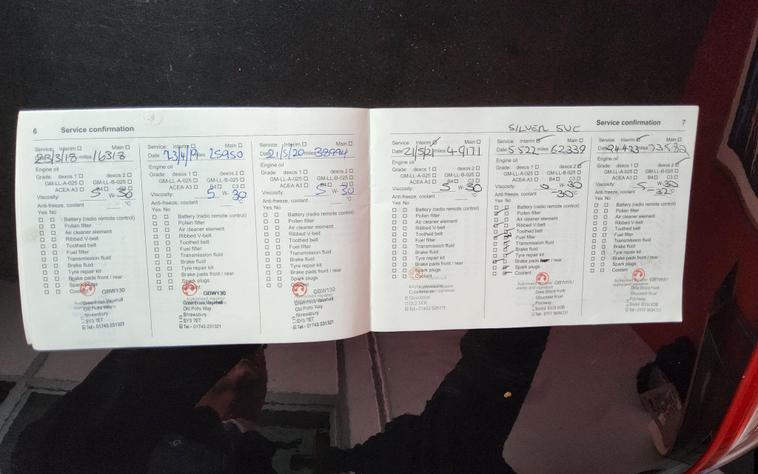 6 Service confirmation
Service: Interim Main
23/3/18 miles 16318
Engine oil
Grade: dexos 1 dexos 2
GM-LL-A-025 GM-LL-B-025
ACEA A3
Viscosity: 5 W- 30
Anti-freeze, coolant °C
Yes No
Battery (radio remote control)
Pollen filter
Air cleaner element
Ribbed V-belt
Toothed belt
Fuel filter
Transmission fluid
Brake fluid
Tyre repair kit
Brake pads front / rear
Spark plugs
GBW130
Greenhous Vauxhall
Old Potts Way
Shrewsbury
SY3 7ET
Tel:- 01743 231321
Service: Interim Main
Date 23/4/19 miles 25950
Engine oil
Grade: dexos 1 dexos 2
GM-LL-A-025 GM-LL-B-025
ACEA A3 B4 C3
Viscosity: 5 W- 30
Anti-freeze, coolant °C
Yes No
Battery (radio remote control)
Pollen filter
Air cleaner element
Ribbed V-belt
Toothed belt
Fuel filter
Transmission fluid
Brake fluid
Tyre repair kit
Brake pads front / rear
Spark plugs
GBW130
Greenhous Vauxhall
Old Potts Way
Shrewsbury
SY3 7ET
Tel:- 01743 231321
Service: Interim Main
Date 21/5/20 miles
Engine oil
Grade: dexos 1 dexos 2
GM-LL-A-025 GM-LL-B-025
ACEA A3
Viscosity: 5 W- 30
Anti-freeze, coolant °C
Yes No
Battery (radio remote control)
Pollen filter
Air cleaner element
Ribbed V-belt
Toothed belt
Fuel filter
Transmission fluid
Brake fluid
Tyre repair kit
Brake pads front / rear
Spark plugs
GBW130
Greenhous Vauxhall
Old Potts Way
Shrewsbury
SY3 7ET
Tel:- 01743 231321
Service confirmation 7
Service: Interim Main
Date 21/5/21 miles 49171
Engine oil
Grade: dexos 1 dexos 2
GM-LL-A-025 GM-LL-B-025
ACEA A3 B4 C3
Viscosity: 5 W- 30
Anti-freeze, coolant °C
Yes No
Battery (radio remote control)
Pollen filter
Air cleaner element
Ribbed V-belt
Toothed belt
Fuel filter
Transmission fluid
Brake fluid
Tyre repair kit
Brake pads front / rear
Spark plugs
Coolant
SILVER SVC
Service: Interim Main
Date 5 5 22 miles 62339
Engine oil
Grade: dexos 1 dexos 2
GM-LL-A-025 GM-LL-B-025
ACEA A3 B4 C3
Viscosity: 5 W- 30
Anti-freeze, coolant -30 °C
Yes No
Battery (radio remote control)
Pollen filter
Air cleaner element
Ribbed V-belt
Toothed belt
Fuel filter
Transmission fluid
Brake fluid
Tyre repair kit
Brake pads rear
Spark plugs
Coolant
Service: Interim Main
Engine oil
Grade: dexos 1 dexos 2
GM-LL-A-025 GM-LL-B-025
ACEA A3 B4 C3
Viscosity: 5 W- 30
Anti-freeze, coolant -32 °C
Yes No
Battery (radio remote control)
Pollen filter
Air cleaner element
Ribbed V-belt
Toothed belt
Fuel filter
Transmission fluid
Brake fluid
Tyre repair kit
Brake pads front / rear
Spark plugs
Coolant